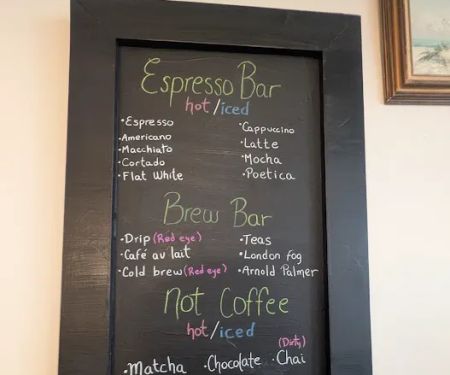 Espresso Bar
hot/iced
·Espresso
·Americano
·Macchiato
·Cortado
·Flat White
·Cappuccino
·Latte
·Mocha
·Poetica
Brew Bar
·Drip (Red eye)
·Café au lait
·Cold brew (Red eye)
·Teas
·London fog
·Arnold Palmer
Not Coffee
hot/iced
·Matcha ·Chocolate ·Chai (Dirty)